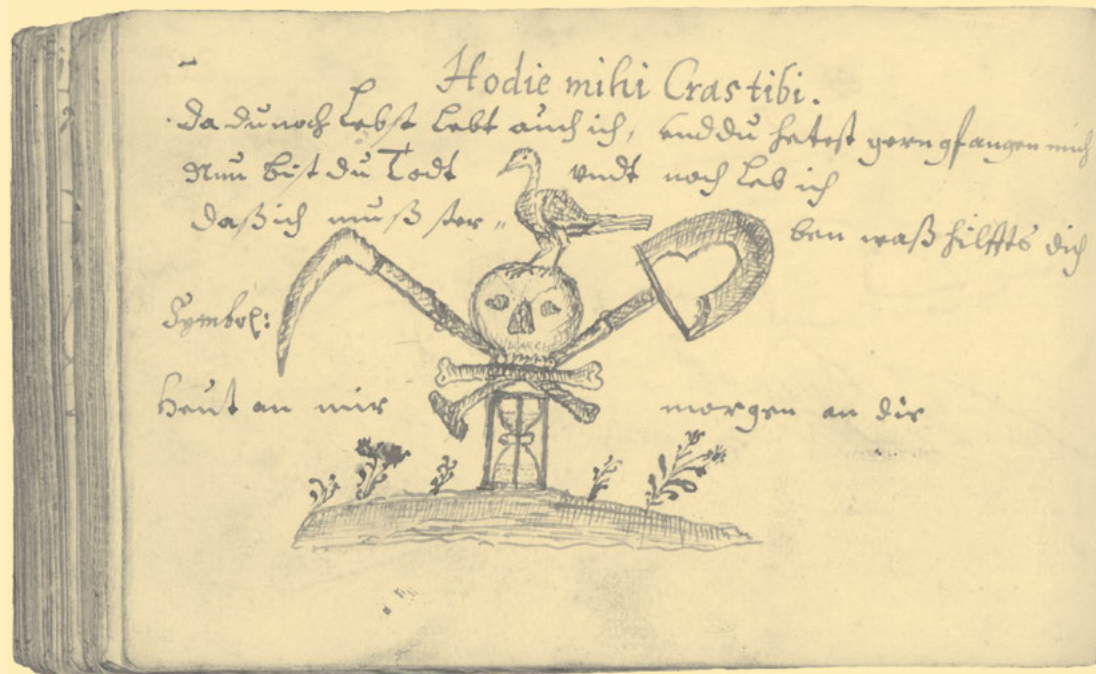 Hodie mihi Cras tibi.
Da du noch lebst lebt auch ich, und du hetest gern gfangen mich
Nun bist du Todt undt noch leb ich
daß ich muß ster„ ben waß hilffts dich
Symbol:
Heut an mir morgen an dir